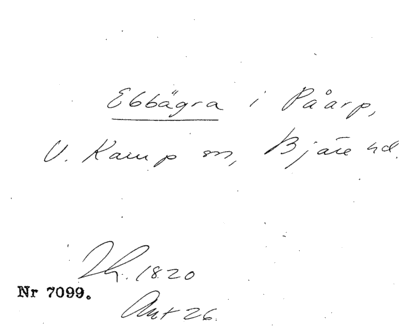 Ebbägra i Påarp,
V. Karup sn, Bjäre hd.
Lh. 1820
Nr 7099.
Ant 26.